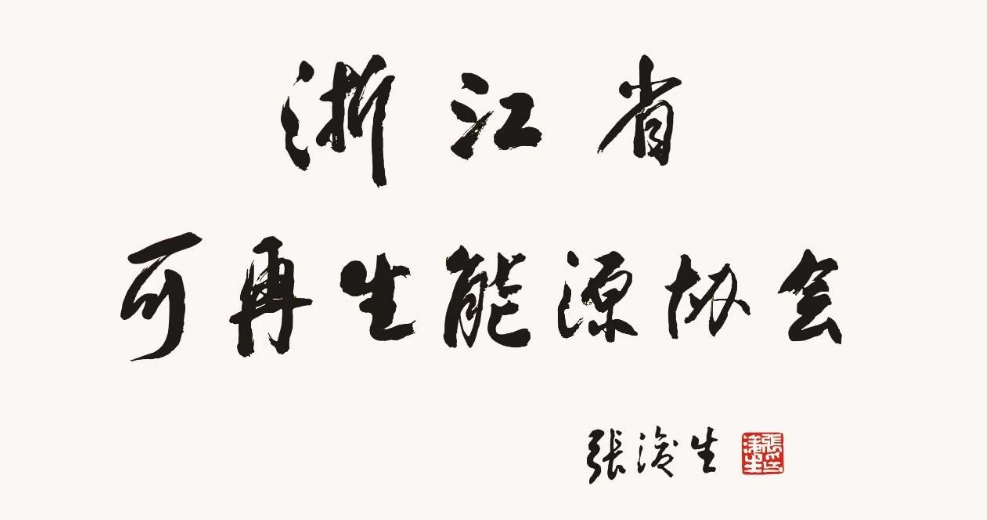 浙江省
可再生能源协会
張浚生
張浚生